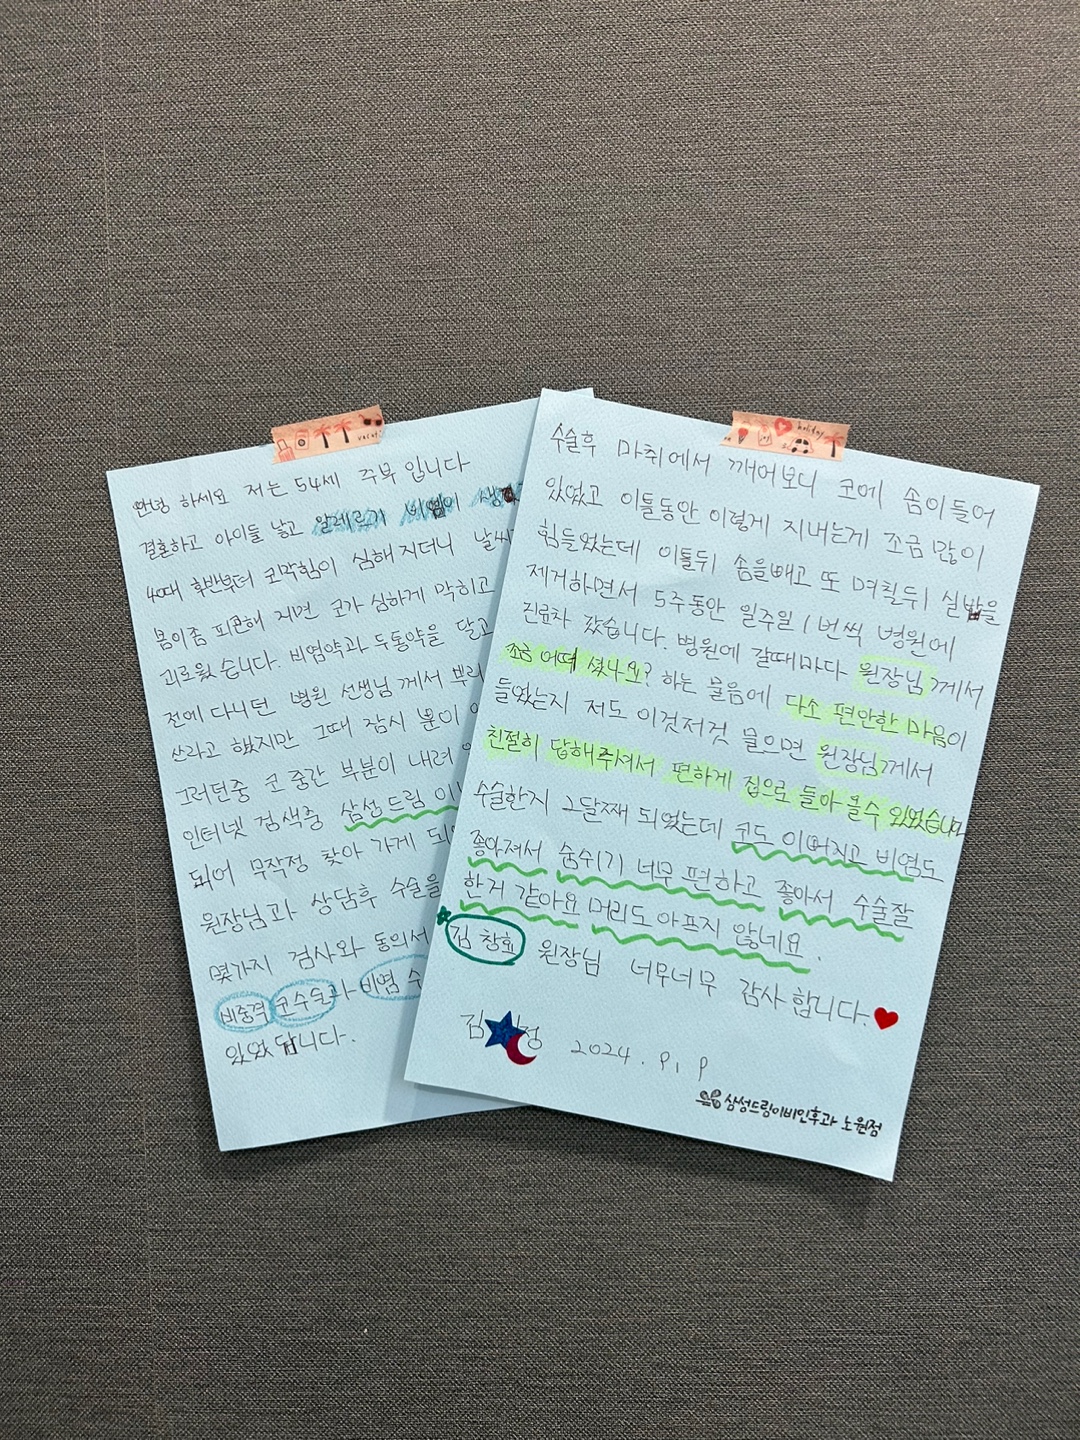 안녕 하세요 저는 54세 주부 입니다
결혼하고 아이들 낳고 알레르기 비염이
40대 후반부터 코막힘이 심해 지더니 날씨
몸이좀 피곤해 지면 코가 심하게 막히고
괴로웠습니다. 비염약과 두통약을 달고
전에 다니던 병원 선생님 께서 뿌리
쓰라고 했지만 그때 잠시 뿐이
그러던중 코 중간 부분이 내려
인터넷 검색중 삼성드림 이
되어 무작정 찾아 가게 되
원장님과 상담후 수술을
몇가지 검사와 동의서
비중격 코수술과 비염 수
있었답니다.
수술후 마취에서 깨어보니 코에 솜이들어
있었고 이틀동안 이렇게 지내는게 조금 많이
힘들었는데 이틀뒤 솜을빼고 또 며칠뒤 실밥을
제거하면서 5주동안 일주일 1번씩 병원에
진료차 갔습니다. 병원에 갈때마다 원장님께서
조금 어떠 셨나요? 하는 물음에 다소 편안한 마음이
들었는지 저도 이것저것 물으면 원장님께서
친절히 답해주셔서 편하게 집으로 돌아 올수 있었습니다
수술한지 2달째 되었는데 코도 이뻐지고 비염도
좋아져서 숨쉬기 너무 편하고 좋아서 수술잘
한거 같아요 머리도 아프지 않네요.
김창효 원장님 너무너무 감사 합니다.
김 정 2024. 9. 9
삼성드림이비인후과 노원점